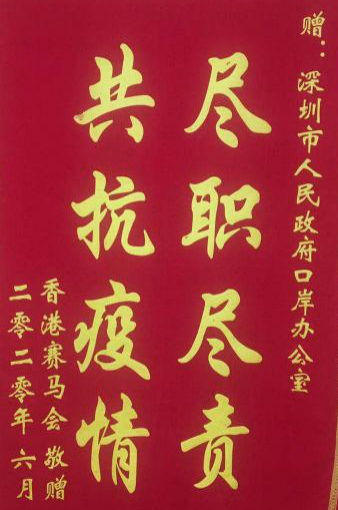 赠：深圳市人民政府口岸办公室
尽职尽责
共抗疫情
香港赛马会 敬赠
二零二零年 六月